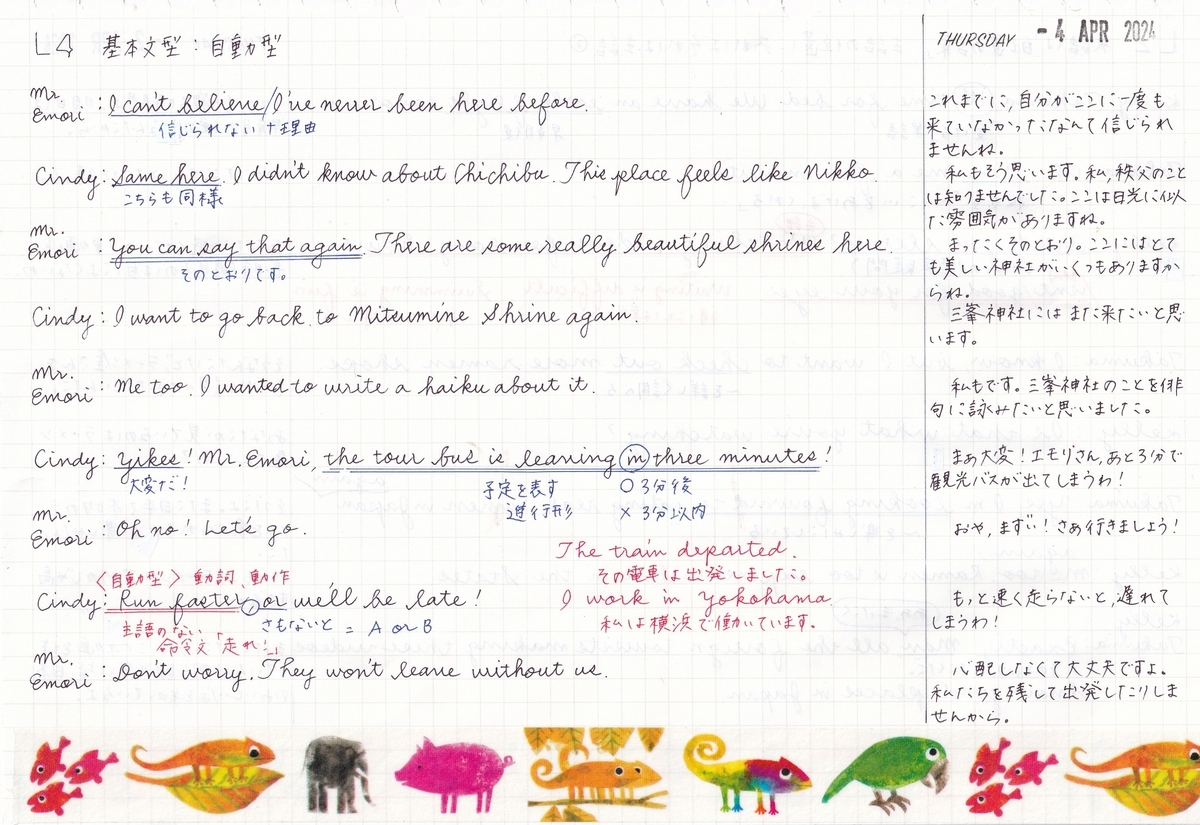 L4 基本文型：自動型
THURSDAY - 4 APR 2024
Mr. Emori : I can't believe / I've never been here before.
信じられない + 理由
Cindy : Same here. I didn't know about Chichibu. This place feels like Nikko.
こちらも同様
Mr. Emori : You can say that again. There are some really beautiful shrines here.
そのとおりです。
Cindy : I want to go back to Mitsumine Shrine again.
Mr. Emori : Me too. I wanted to write a haiku about it.
Cindy : Yikes! Mr. Emori, the tour bus is leaving in three minutes!
大変だ！ 予定を表す ○ 3分後
進行形 × 3分以内
Mr. Emori : Oh no! Let's go.
The train departed.
その電車は出発しました。
I work in Yokohama
私は横浜で働いています。
〈自動型〉 動詞、動作
Cindy : Run faster, or we'll be late!
主語のない さもないと = A or B
命令文「走れ！」
Mr. Emori : Don't worry. They won't leave without us.
これまでに、自分がここに一度も
来ていなかったなんて信じられ
ませんね。
私もそう思います。私、秩父のこと
は知りませんでした。ここは日光に似
た雰囲気がありますね。
まったくそのとおり。ここにはとて
も美しい神社がいくつもありますか
らね。
三峯神社にはまた来たいと思
います。
私もです。三峯神社のことを俳
句に詠みたいと思いました。
まあ大変！エモリさん、あと3分で
観光バスが出てしまうわ！
おや、まずい！さあ行きましょう！
もっと速く走らないと、遅れて
しまうわ！
心配しなくて大丈夫ですよ。
私たちを残して出発したりしま
せんから。